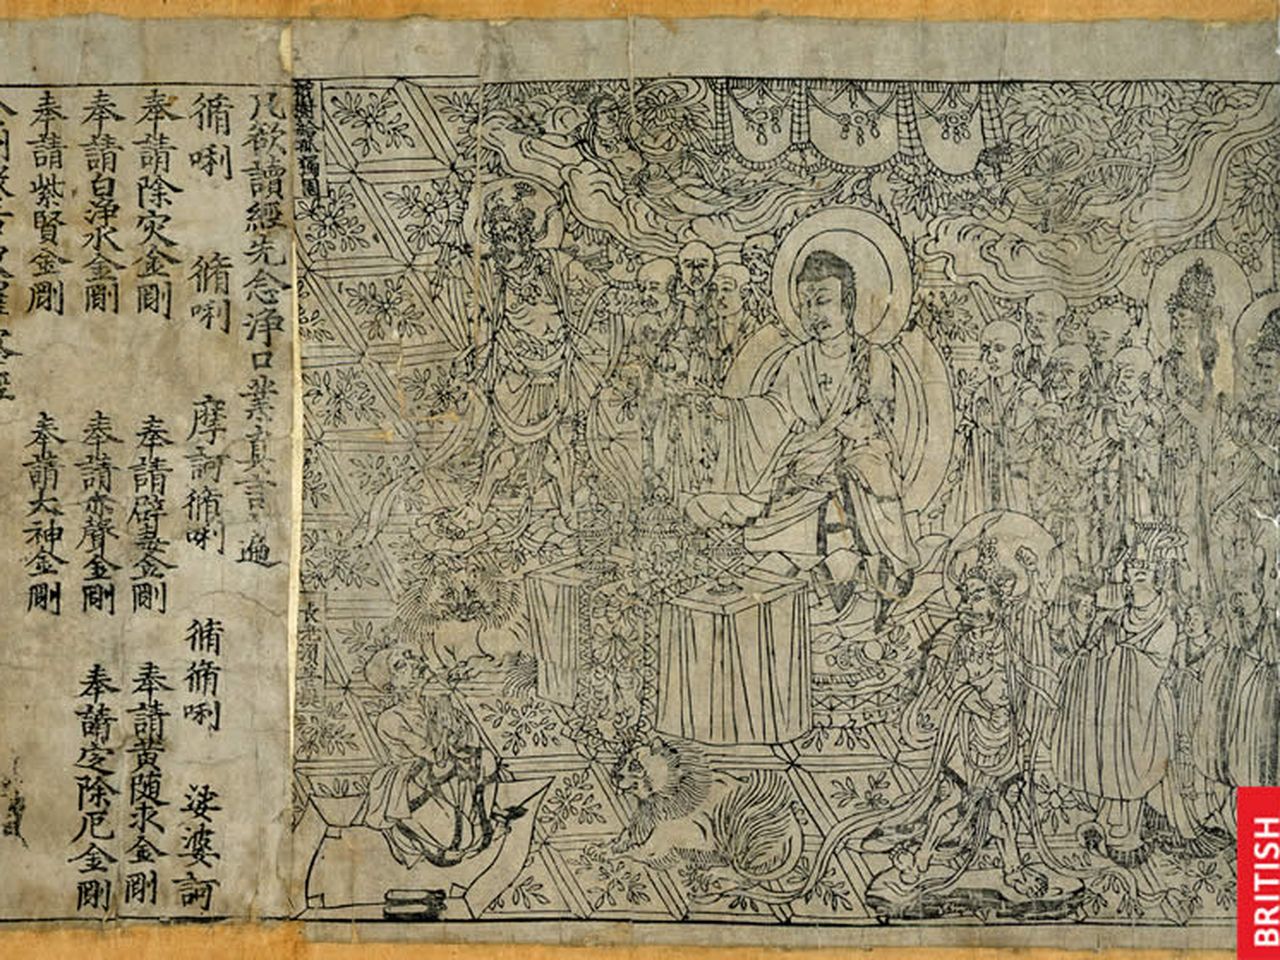 祇樹給孤獨園
長老須菩提
凡欲讀經先念淨口業真言遍
脩唎 脩唎 摩訶脩唎 脩脩唎 娑婆訶
奉請除災金剛 奉請辟毒金剛 奉請黃随求金剛
奉請白淨水金剛 奉請赤聲金剛 奉請定除厄金剛
奉請紫賢金剛 奉請大神金剛
BRITISH